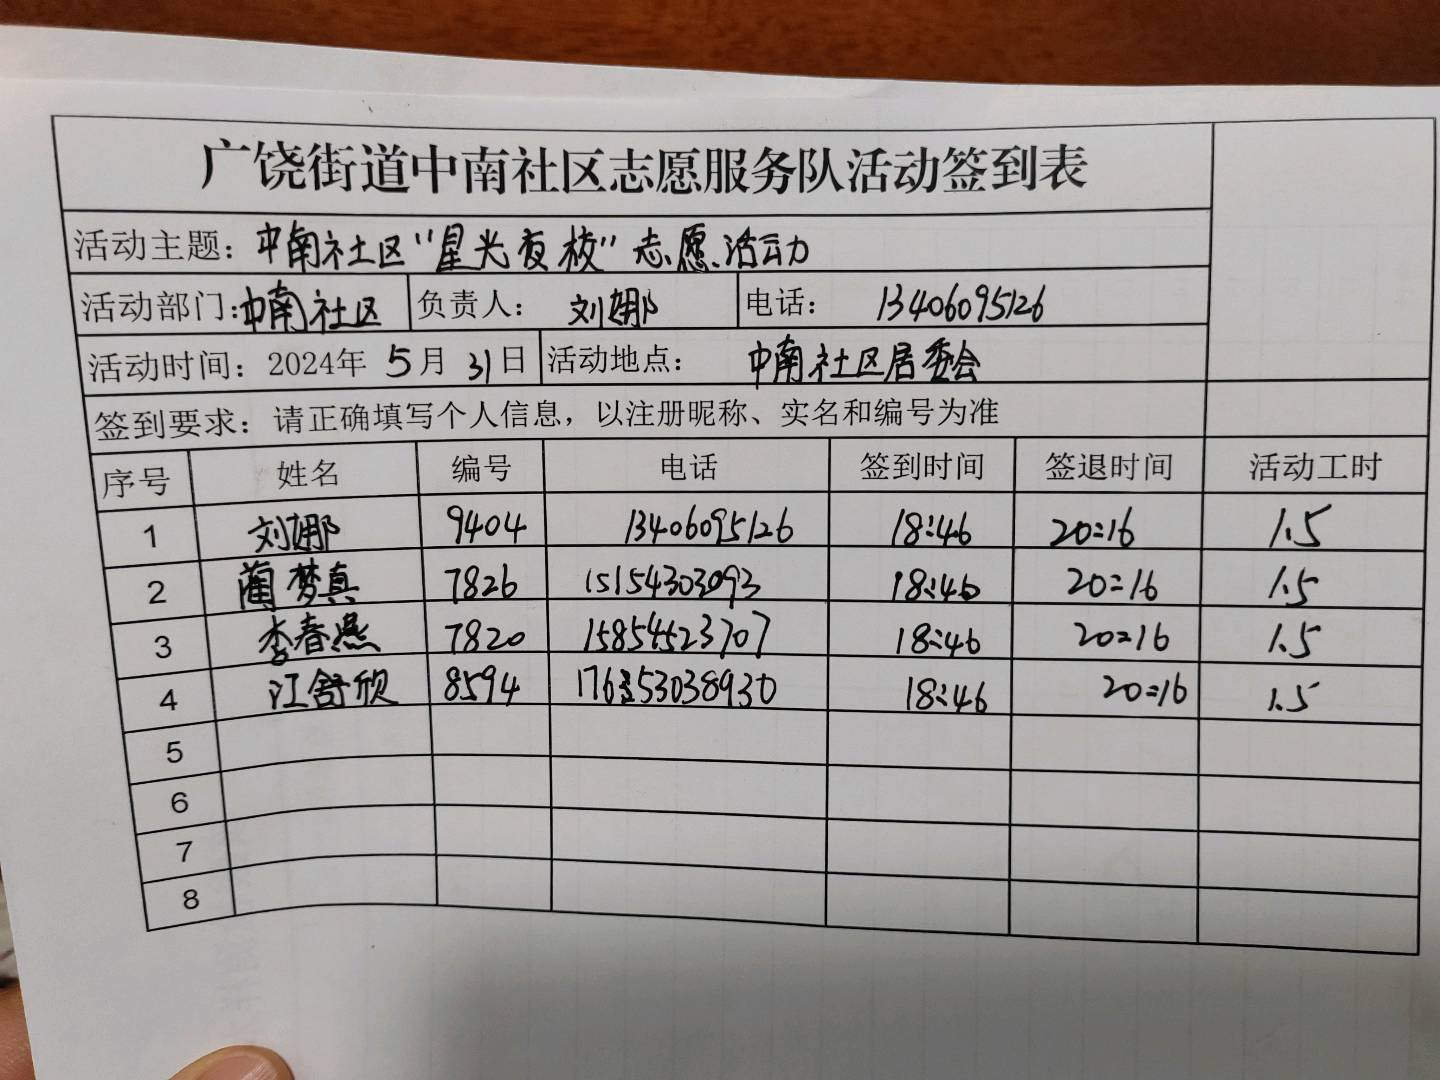 广饶街道中南社区志愿服务队活动签到表
活动主题：中南社区“星光夜校”志愿活动
活动部门：中南社区 负责人： 刘娜 电话： 13406095126
活动时间：2024年 5月 31日 活动地点： 中南社区居委会
签到要求：请正确填写个人信息，以注册昵称、实名和编号为准
序号 姓名 编号 电话 签到时间 签退时间 活动工时
1 刘娜 9404 13406095126 18:46 20:16 1.5
2 蔺梦真 7826 15154303093 18:46 20:16 1.5
3 李春燕 7820 15854523707 18:46 20:16 1.5
4 江舒欣 8594 18:46 20:16 1.5
5
6
7
8